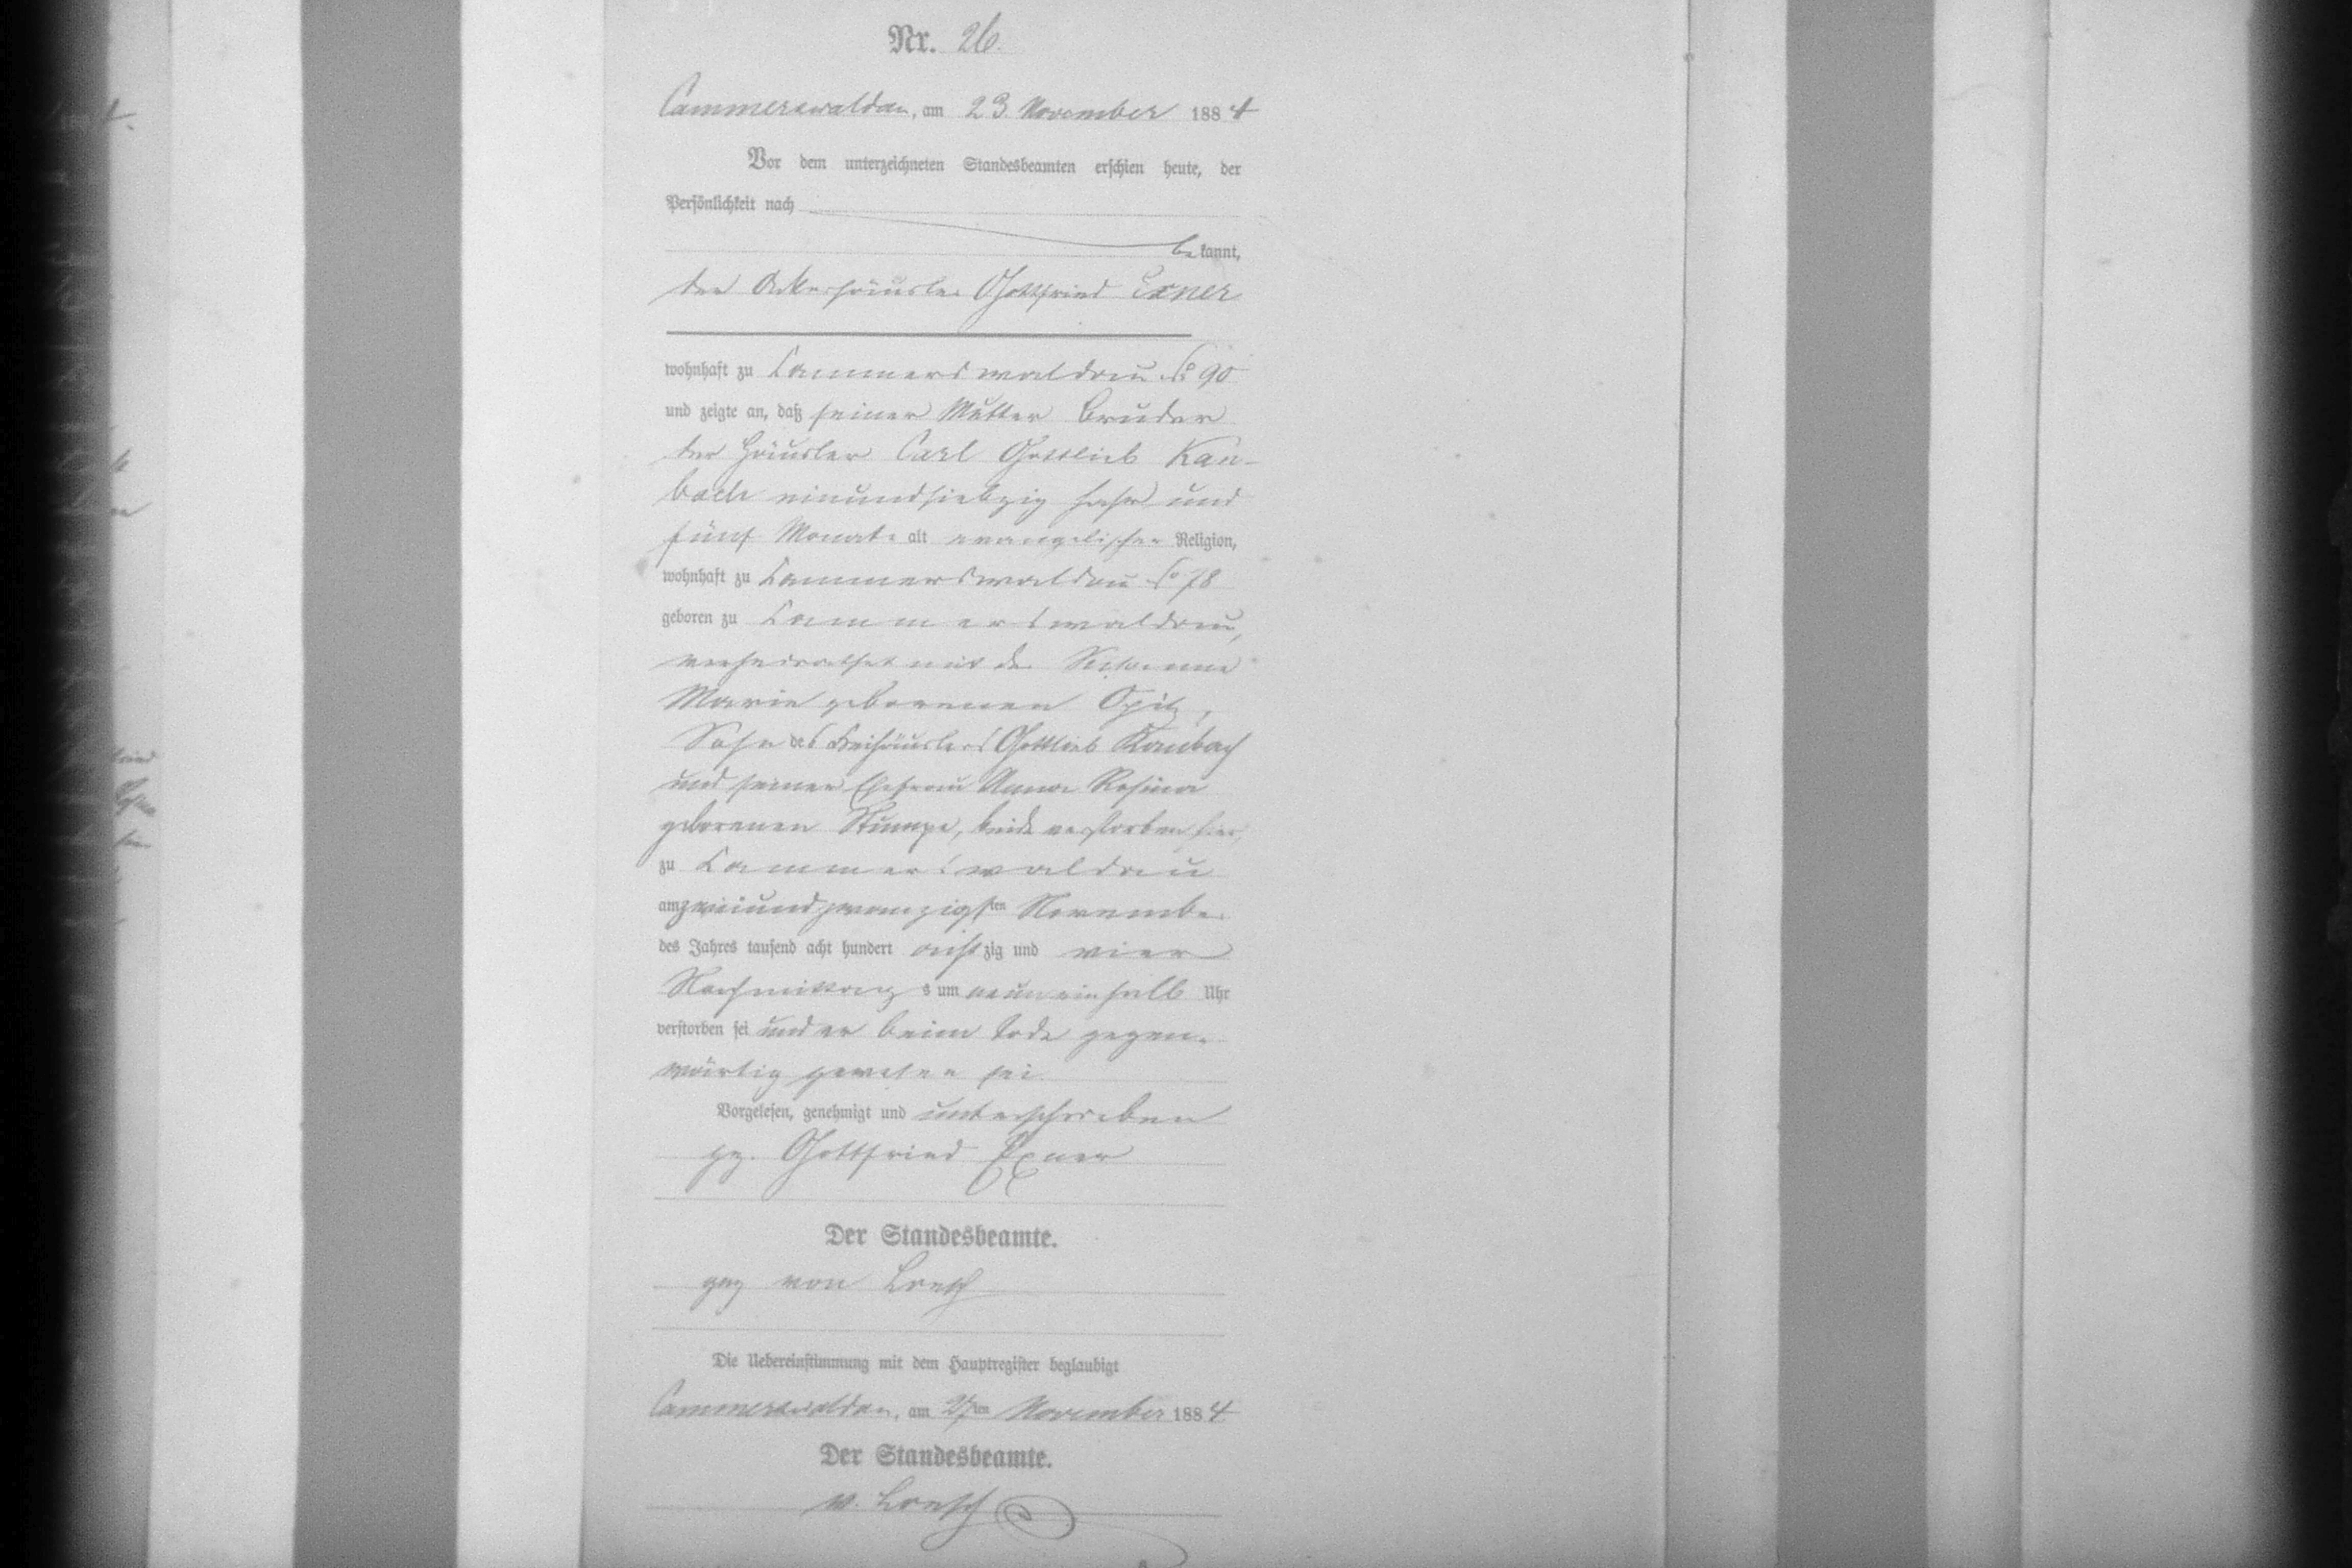 Nr. 26.
Cammerswaldau, am 23. November 1884
Vor dem unterzeichneten Standesbeamten erschien heute, der
Persönlichkeit nach
bekannt,
der Ackerhäusler Gottfried Exner
wohnhaft zu Cammerswaldau No 90
und zeigte an, daß seiner Mutter Bruder
der Häusler Carl Gottlieb Kau-
bach einundsiebzig Jahr und
fünf Monate alt evangelischer Religion,
wohnhaft zu Cammerswaldau No 78
geboren zu Cammerswaldau,
verheirathet mit der Hebamme
Marie geborenen Opitz,
Sohn des Freihäuslers Gottlieb Kaubach
und seiner Ehefrau Anna Rosina
geborenen Stumpe, beide verstorben hier,
zu Cammerswaldau
am zweiundzwanzigsten November
des Jahres tausend acht hundert achtzig und vier
Nachmittags um neuneinhalb Uhr
verstorben sei und er beim Tode gegen-
wärtig gewesen sei.
Vorgelesen, genehmigt und unterschrieben
gz. Gottfried Exner
Der Standesbeamte.
gez von Loesch
Die Uebereinstimmung mit dem Hauptregister beglaubigt
Cammerswaldau, am 27ten November 1884
Der Standesbeamte.
v. Loesch